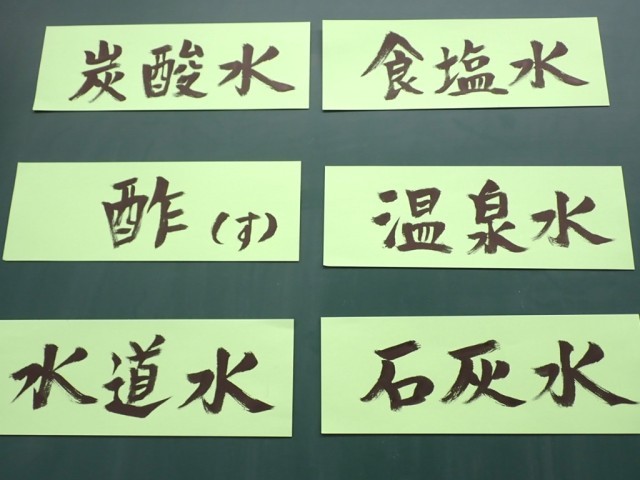 炭酸水
食塩水
酢(す)
温泉水
水道水
石灰水